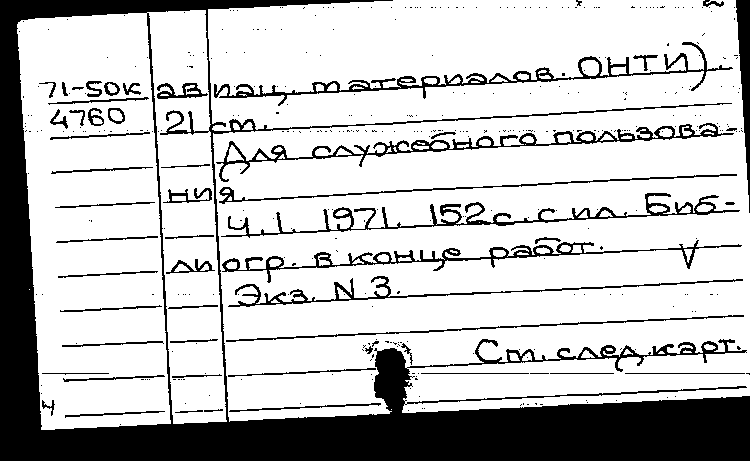 71-50к авиац. материалов. ОНТИ).
4760 21 см.
Для служебного пользова-
ния.
Ч.1. 1971. 152с. с ил. Биб-
лиогр. в конце работ. V
Экз. N 3.
См. след. карт.
ч